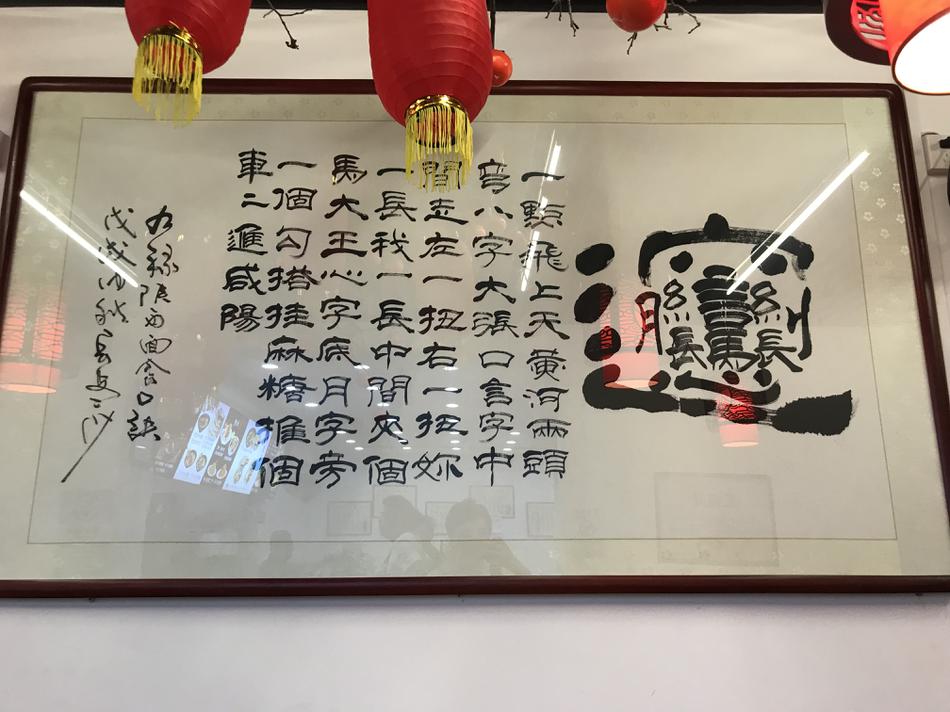 𰻞
一點飛上天黃河兩頭
彎八字大張口言字中
間走左一扭右一扭妳
一長我一長中間夾個
馬大王心字底月字旁
一個勾搭挂麻糖推個
車二進咸陽
右錄陝西面食口訣
戊戌秋長安